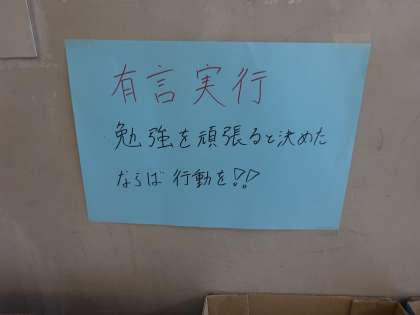 有言実行
勉強を頑張ると決めた
ならば 行動を!!